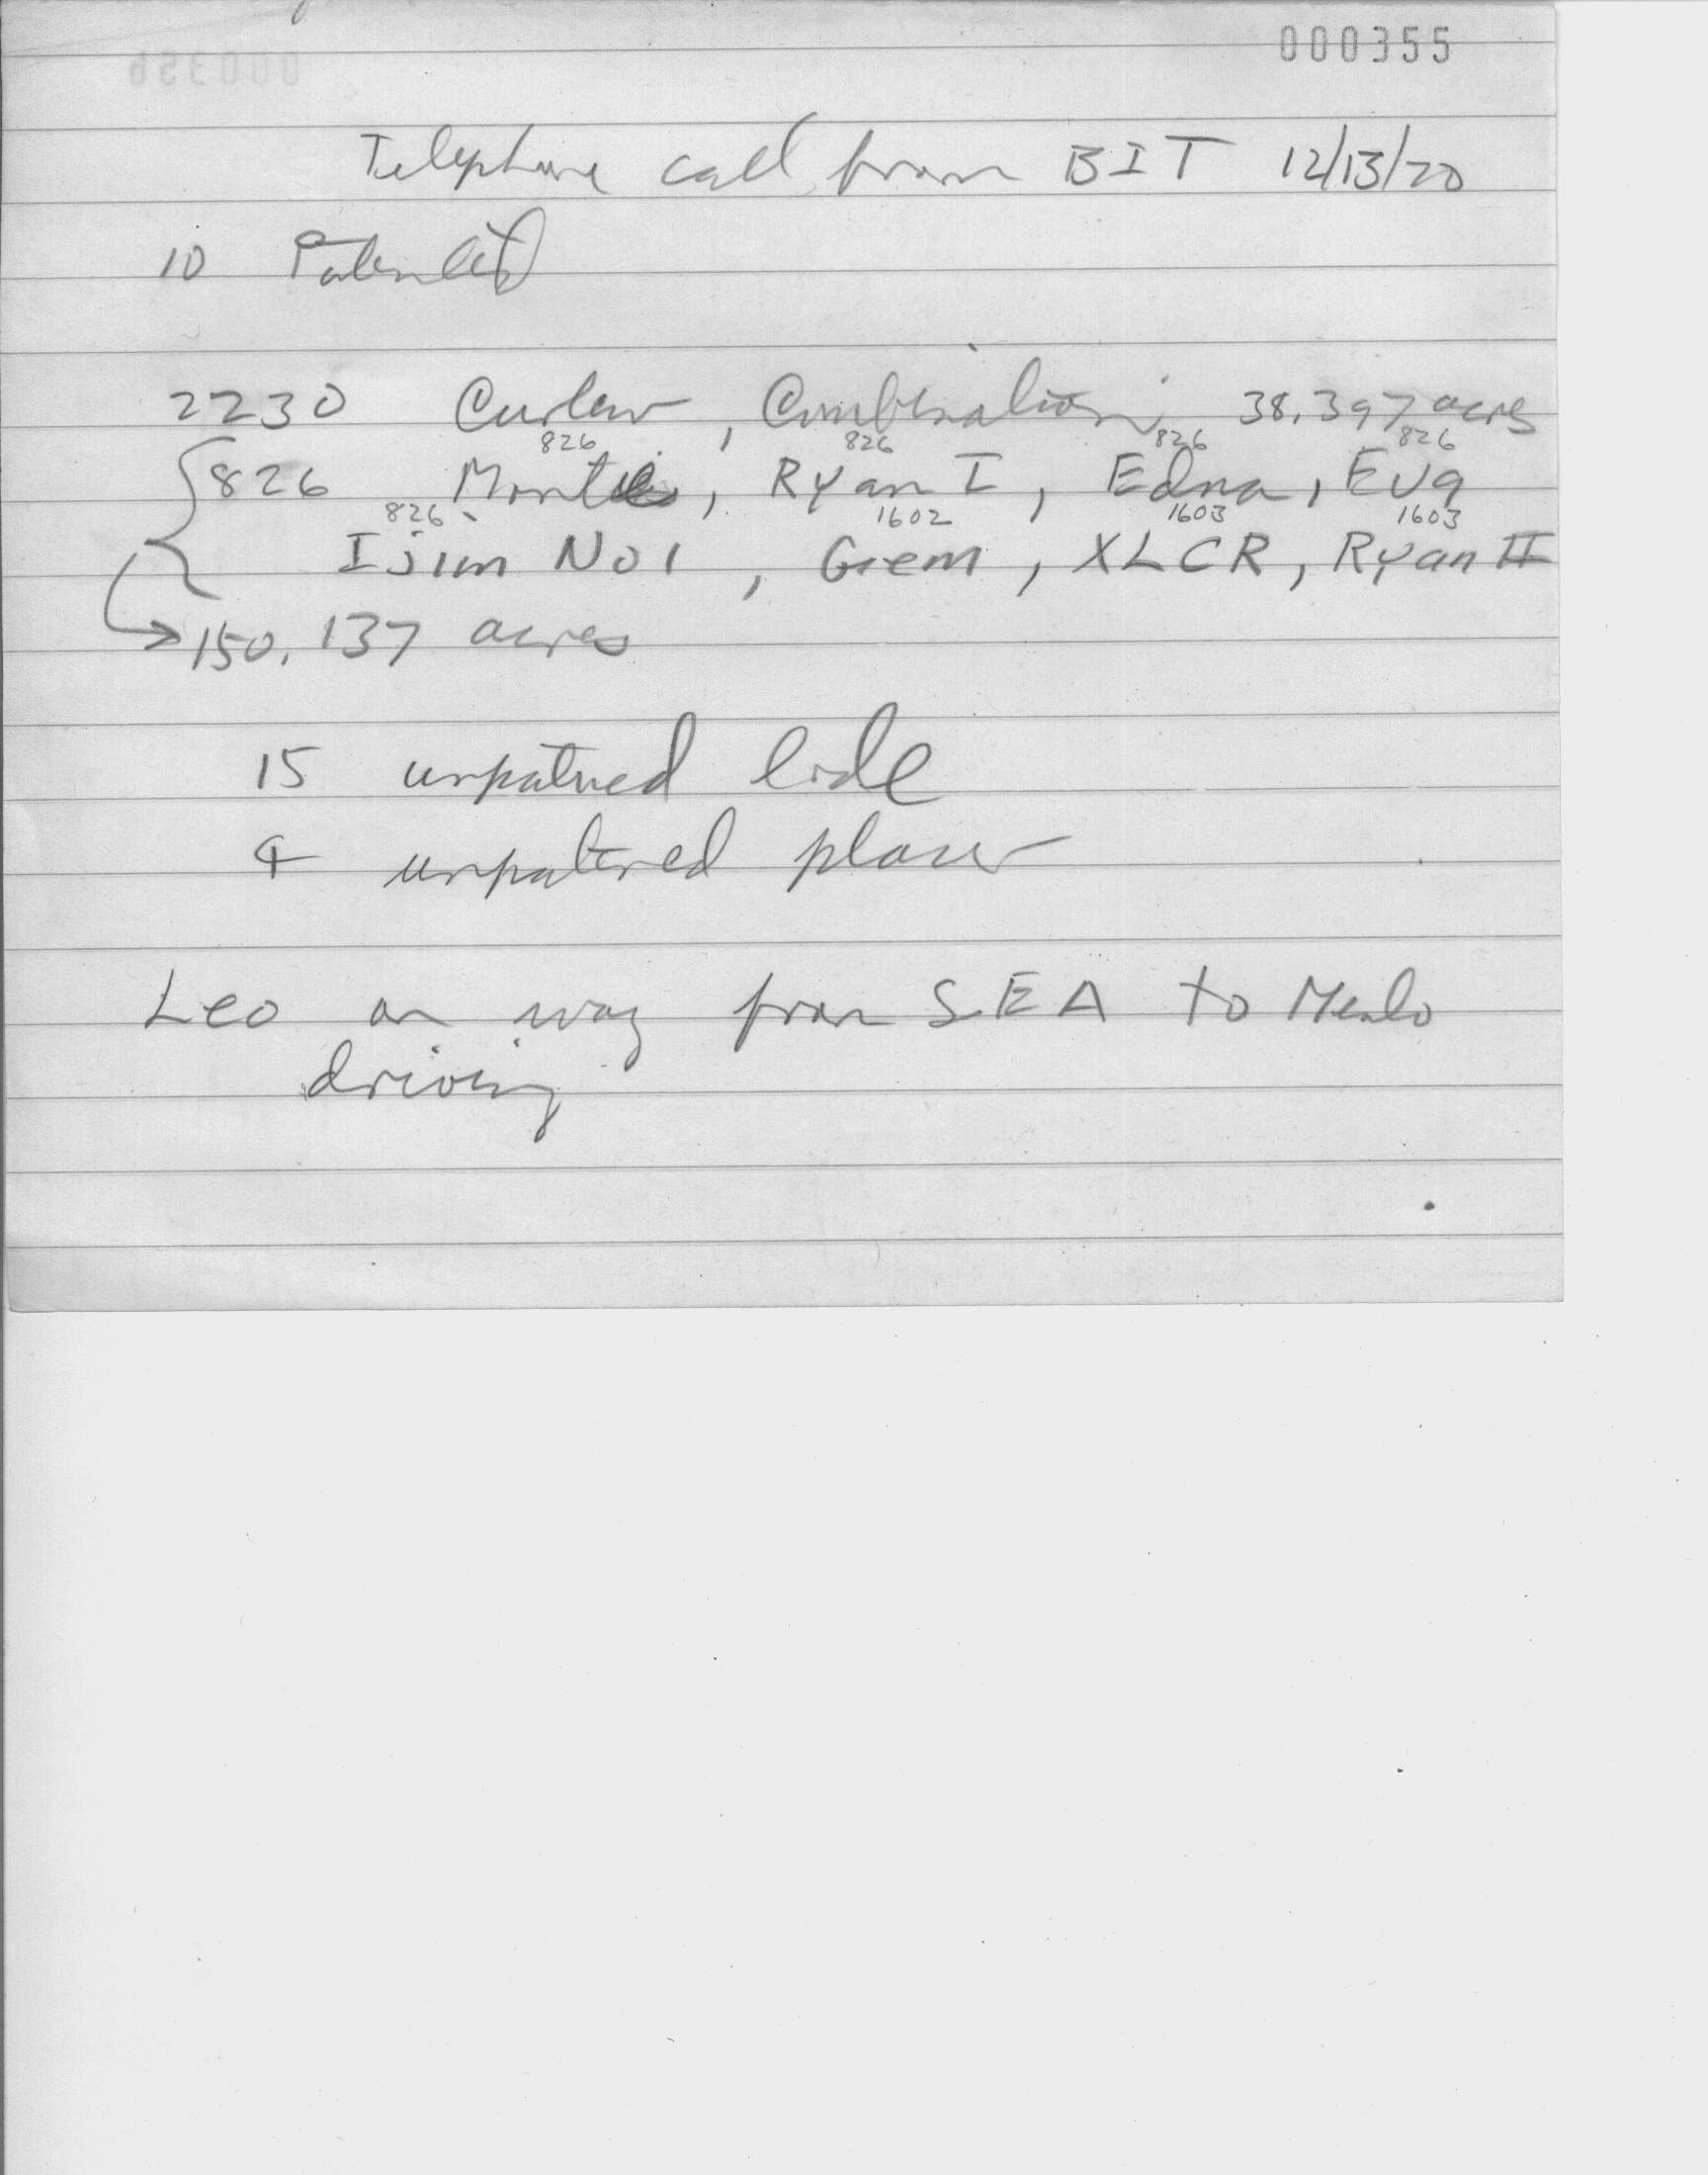 000355
Telephone call from BIT 12/13/70
10 Patented
2230 Curlew, Combination 38.397 acres
826 826 826 826
826 Montie, Ryan I, Edna, Eva
826 1602 1603 1603
No 1, Gem, XLCR, Ryan II
150.137 acres
15 unpatned lode
4 unpatened placer
Leo on way from SEA to Menlo
driving